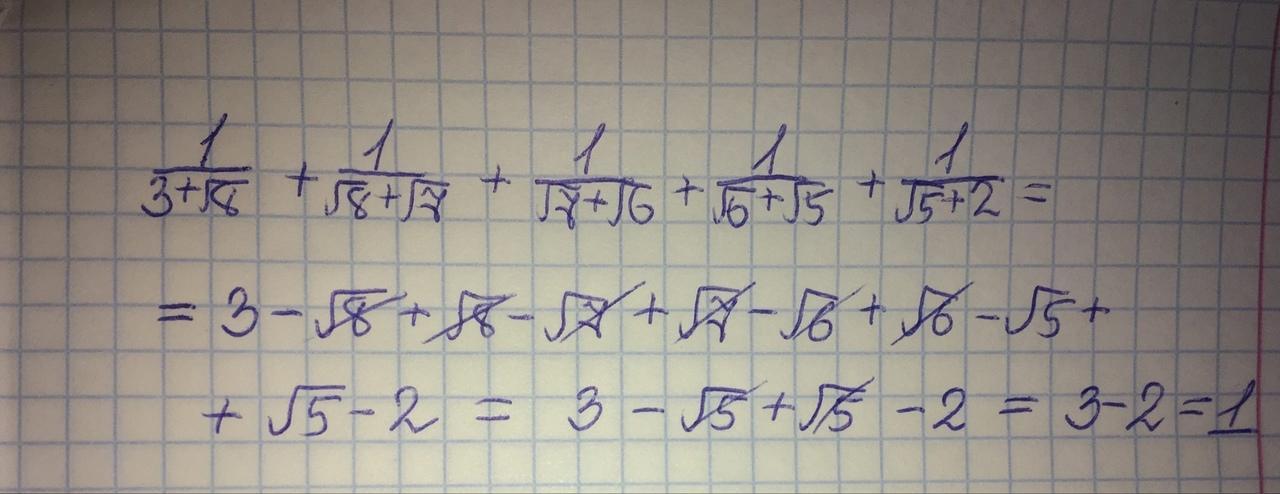 1/(3+√8) + 1/(√8+√7) + 1/(√7+√6) + 1/(√6+√5) + 1/(√5+2) =
= 3 - √8 + √8 - √7 + √7 - √6 + √6 - √5 +
+ √5 - 2 = 3 - √5 + √5 - 2 = 3-2 = 1